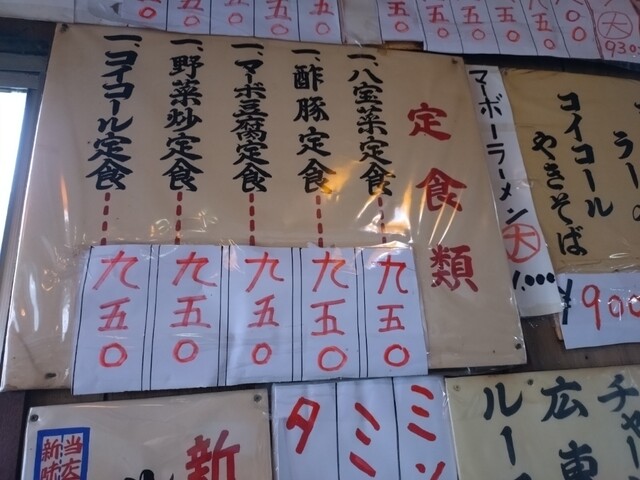 五〇
五〇
五〇
五〇
五〇
五〇
五〇
五〇
五〇
五〇
〇〇
大
930
定食類
一、八宝菜定食
九五〇
一、酢豚定食
九五〇
一、マーボ豆腐定食
九五〇
一、野菜炒定食
九五〇
一、コイコール定食
九五〇
マーボーラーメン
大
コイコール
やきそば
¥900
チャー
広東
ルース
ミソ
ミ
タ
新
当店
新